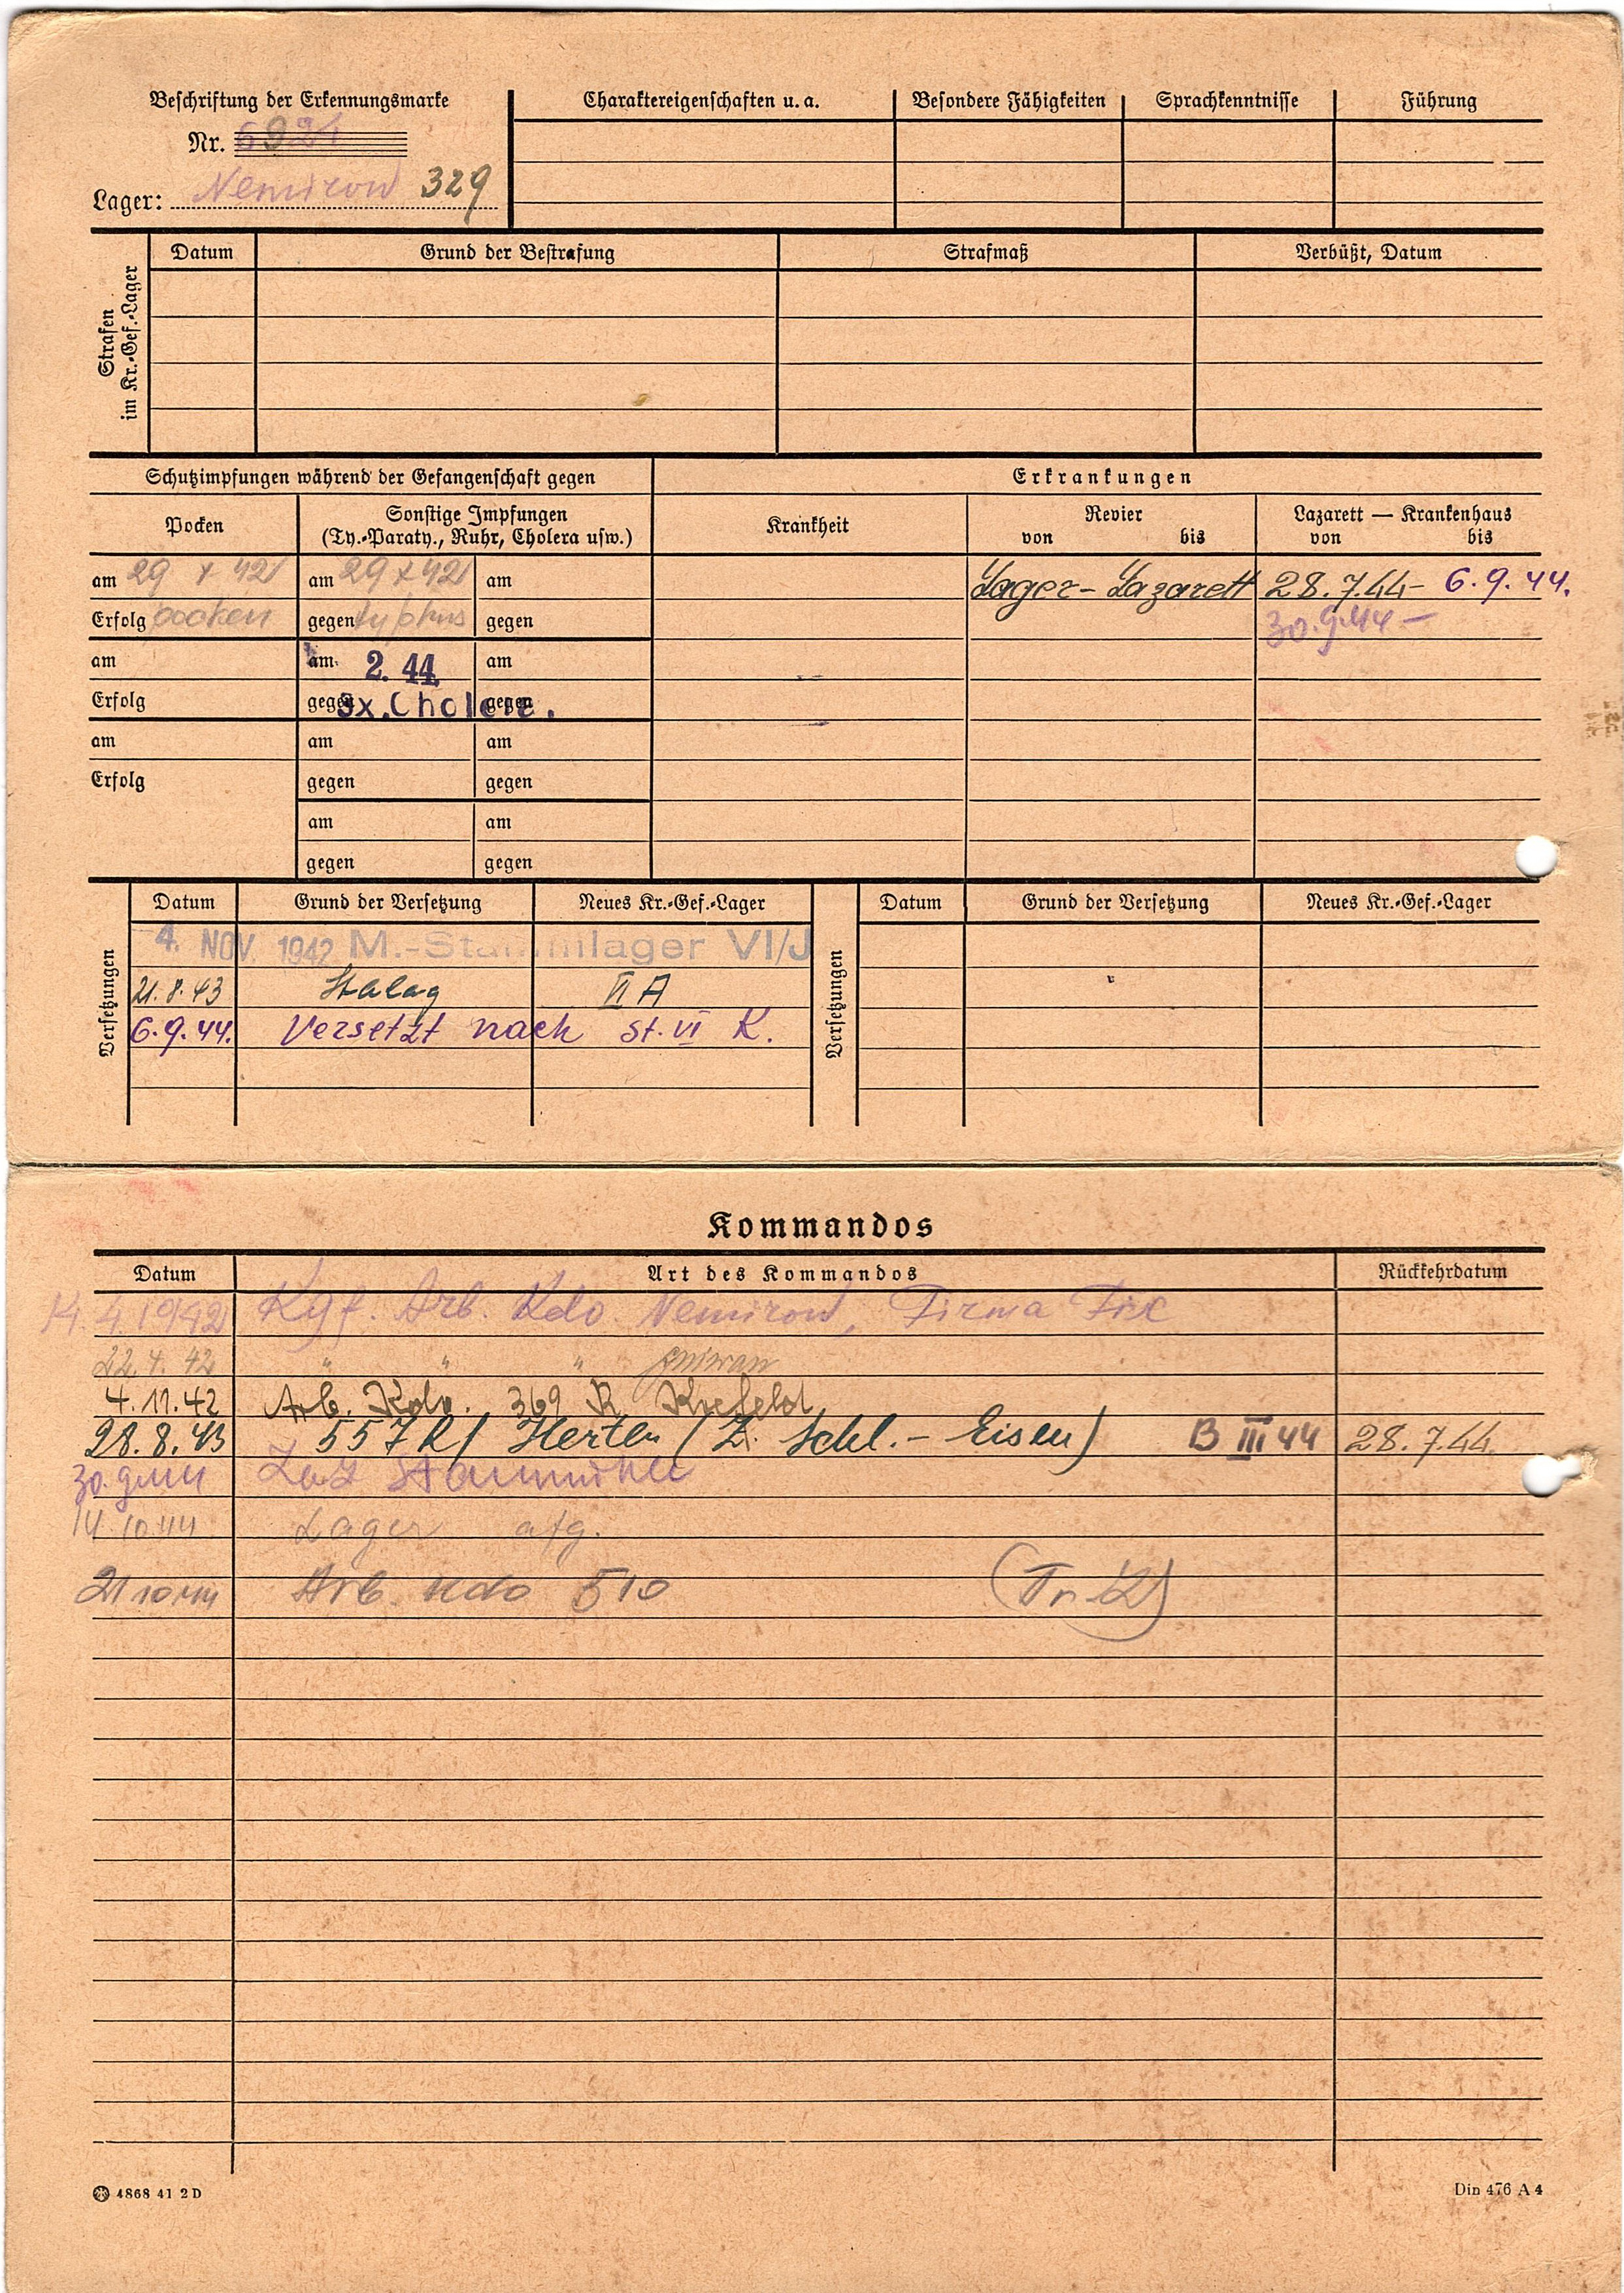 Beschriftung der Erkennungsmarke
Nr. 6924
Lager: Nemirow 329
Charaktereigenschaften u. a.
Besondere Fähigkeiten
Sprachkenntnisse
Führung
Strafen im Kr.-Gef.-Lager
Datum
Grund der Bestrafung
Strafmaß
Verbüßt, Datum
Schutzimpfungen während der Gefangenschaft gegen
Erkrankungen
Pocken
Sonstige Impfungen
(Ty.-Paraty., Ruhr, Cholera usw.)
Krankheit
Revier
von bis
Lazarett — Krankenhaus
von bis
am 29 X 42 am 29 X 42 am
Lager-Lazarett 28.7.44- 6.9.44.
Erfolg pocken gegen typhus gegen
30.9.44 —
am am 2. 44 am
Erfolg gegen 3x. Cholera. gegen
am am am
Erfolg gegen gegen
am am
gegen gegen
Versetzungen
Datum Grund der Versetzung Neues Kr.-Gef.-Lager
4. NOV. 1942 M.-Stammlager VI/J
21.8.43 Stalag VI A
6.9.44. Versetzt nach St. VI K.
Versetzungen
Datum Grund der Versetzung Neues Kr.-Gef.-Lager
Kommandos
Datum Art des Kommandos Rückkehrdatum
14.4.1942 Kgf. Arb. Kdo. Nemirow, Firma Fix
22.4.42 " " "
4.11.42 Arb. Kdo. 369 R Krefeld
28.8.43 557 R/ Herten (Z. Schl.- Eisen) B III 44 28.7.44.
30.9.44 Laz Staumühle
14.10.44 Lager afg.
21 10 44 Arb. Kdo 510
4868 41 2 D
Din 476 A 4